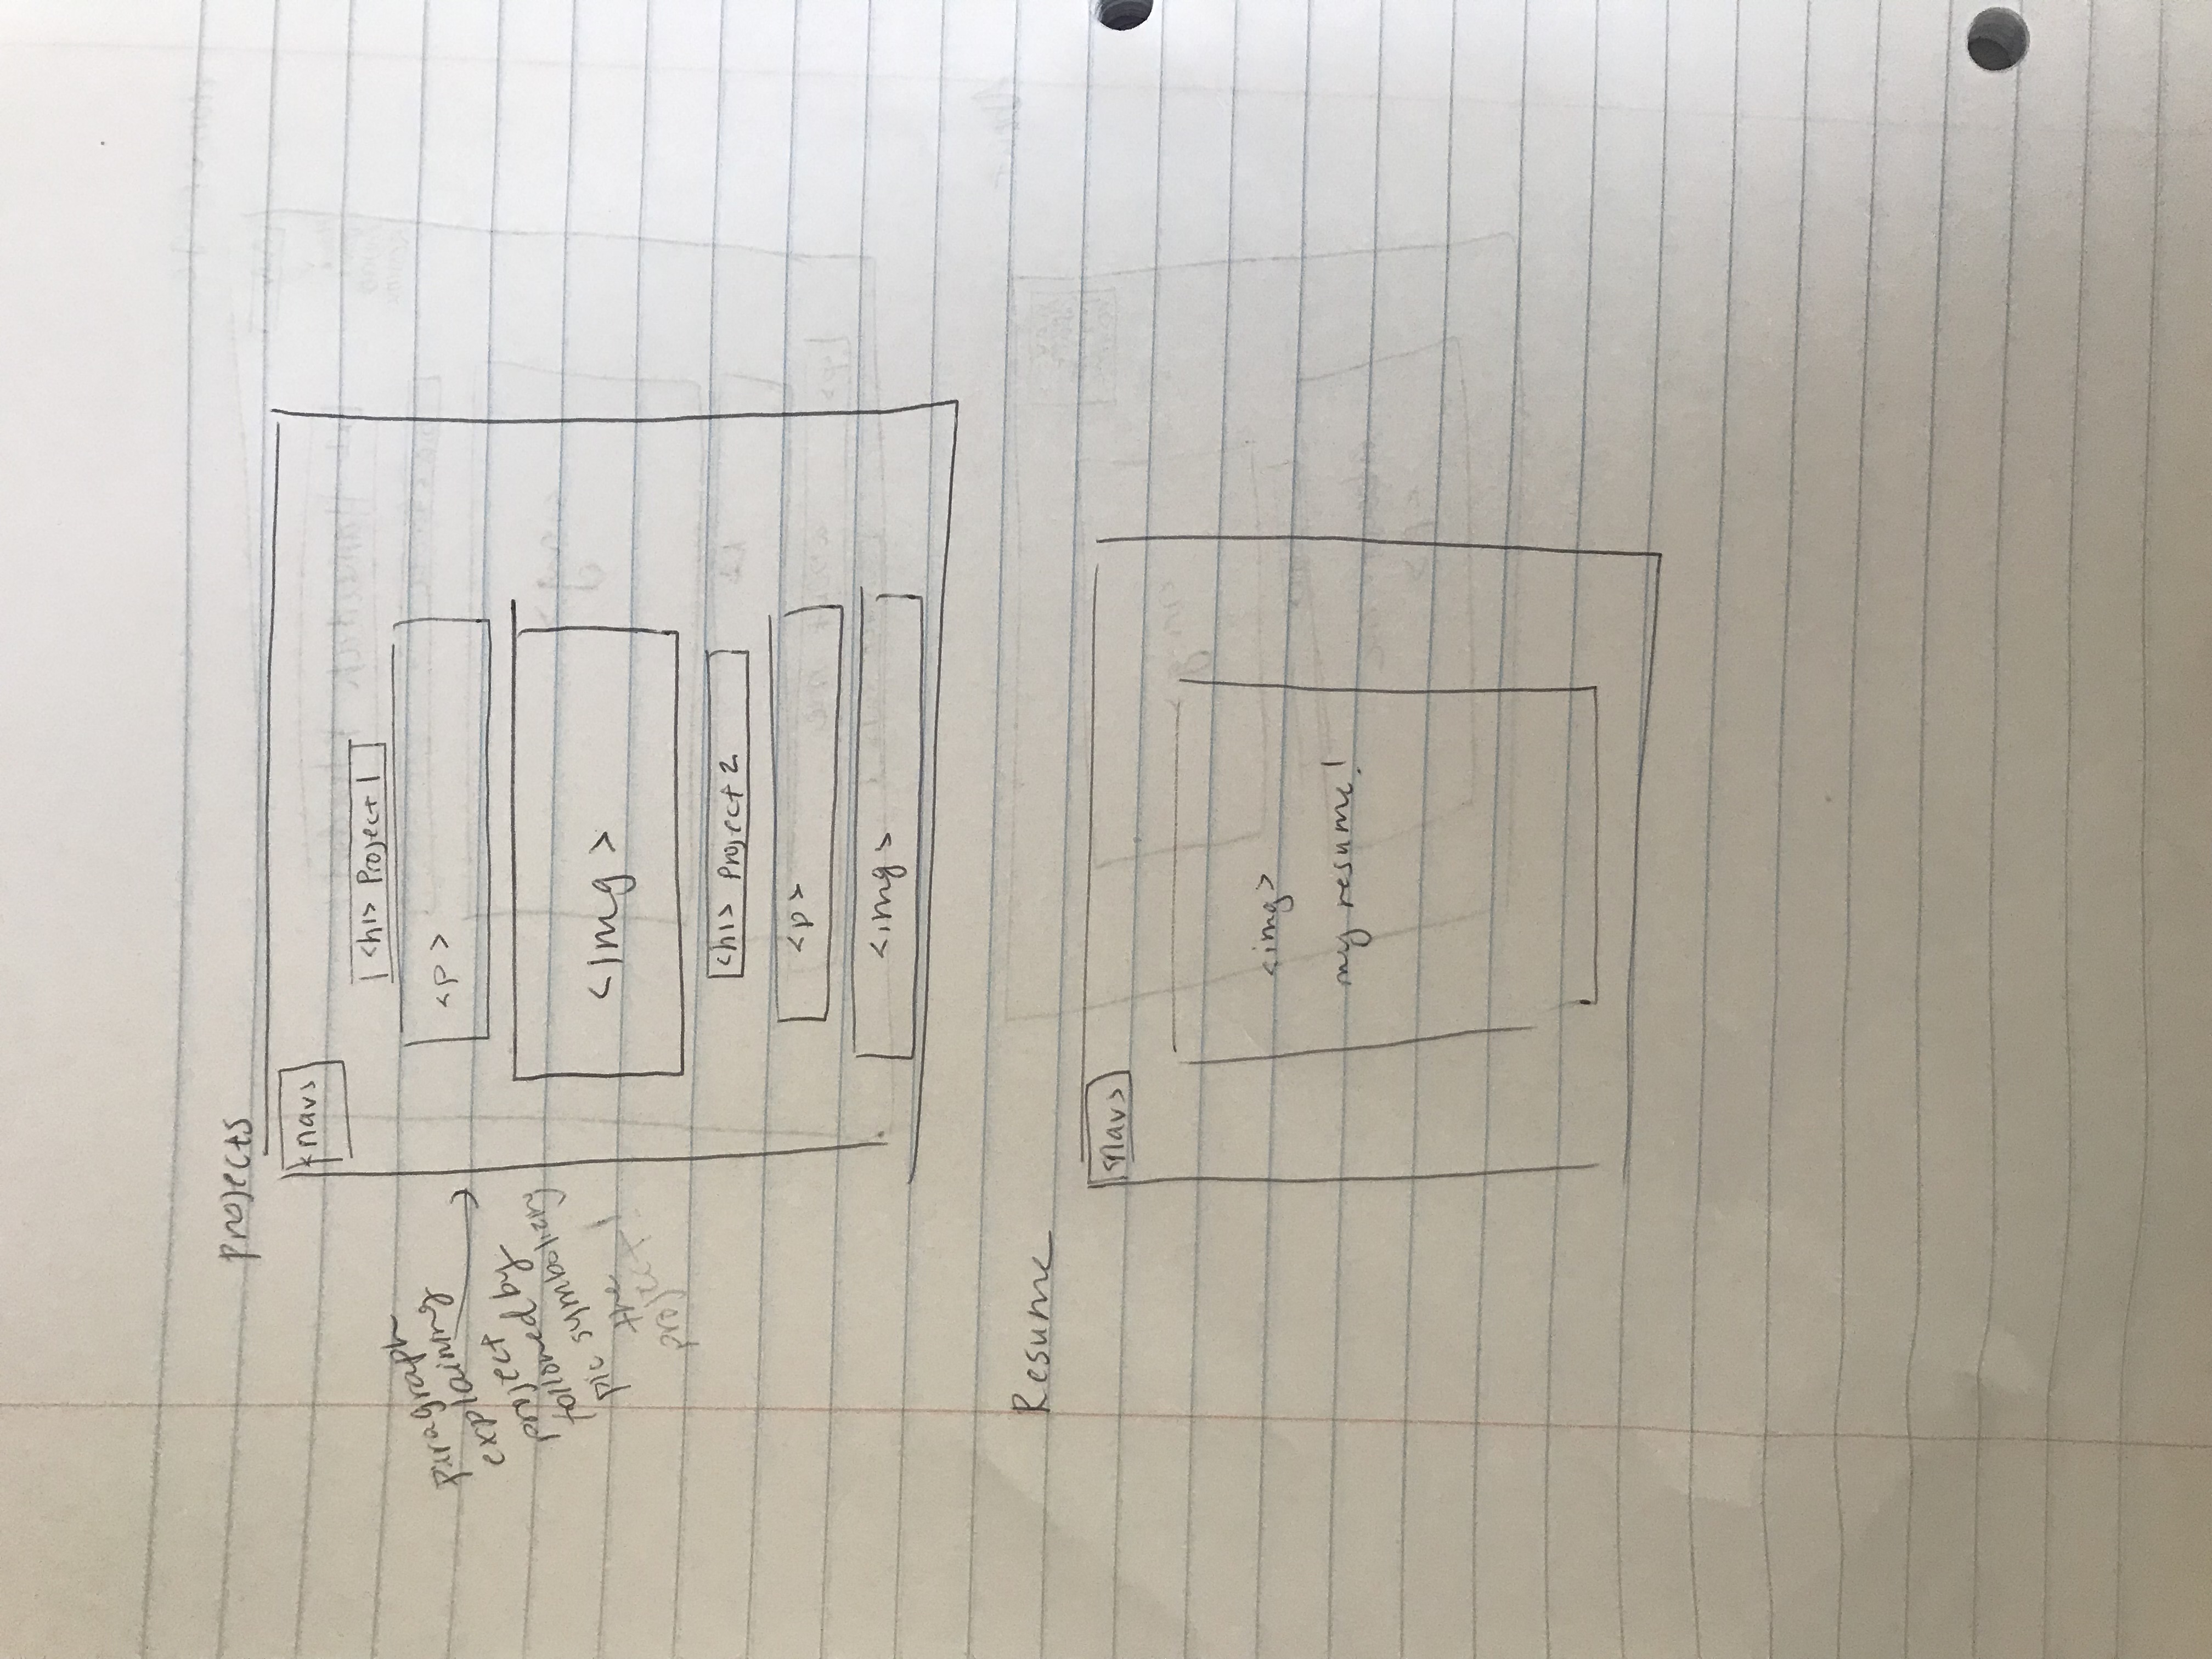 projects
<nav>
<h1> Project 1
<p>
paragraph
explaining
project
followed by
pic symbolizing
the
project!
<img>
<h1> Project 2
<p>
<img>
Resume
<nav>
<img>
my resume!